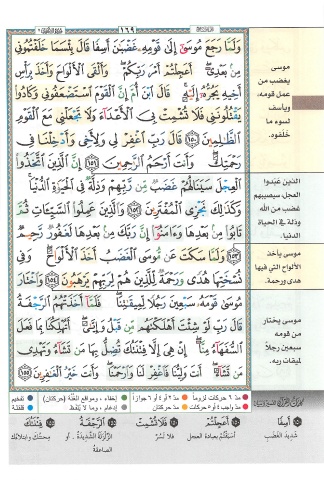 ١٦٩
وَلَمَّا رَجَعَ مُوسَىٰ إِلَىٰ قَوْمِهِ غَضْبَٰنَ أَسِفًا قَالَ بِئْسَمَا خَلَفْتُمُونِى
مِنۢ بَعْدِىٓ أَعَجِلْتُمْ أَمْرَ رَبِّكُمْ وَأَلْقَى ٱلْأَلْوَاحَ وَأَخَذَ بِرَأْسِ
أَخِيهِ يَجُرُّهُۥٓ إِلَيْهِ قَالَ ٱبْنَ أُمَّ إِنَّ ٱلْقَوْمَ ٱسْتَضْعَفُونِى وَكَادُوا۟
يَقْتُلُونَنِى فَلَا تُشْمِتْ بِىَ ٱلْأَعْدَآءَ وَلَا تَجْعَلْنِى مَعَ ٱلْقَوْمِ
ٱلظَّٰلِمِينَ ١٥٠ قَالَ رَبِّ ٱغْفِرْ لِى وَلِأَخِى وَأَدْخِلْنَا فِى
رَحْمَتِكَ وَأَنتَ أَرْحَمُ ٱلرَّٰحِمِينَ ١٥١ إِنَّ ٱلَّذِينَ ٱتَّخَذُوا۟
ٱلْعِجْلَ سَيَنَالُهُمْ غَضَبٌ مِّن رَّبِّهِمْ وَذِلَّةٌ فِى ٱلْحَيَوٰةِ ٱلدُّنْيَا
وَكَذَٰلِكَ نَجْزِى ٱلْمُفْتَرِينَ ١٥٢ وَٱلَّذِينَ عَمِلُوا۟ ٱلسَّيِّـَٔاتِ ثُمَّ
تَابُوا۟ مِنۢ بَعْدِهَا وَءَامَنُوٓا۟ إِنَّ رَبَّكَ مِنۢ بَعْدِهَا لَغَفُورٌ رَّحِيمٌ
١٥٣ وَلَمَّا سَكَتَ عَن مُّوسَى ٱلْغَضَبُ أَخَذَ ٱلْأَلْوَاحَ وَفِى
نُسْخَتِهَا هُدًى وَرَحْمَةٌ لِّلَّذِينَ هُمْ لِرَبِّهِمْ يَرْهَبُونَ ١٥٤ وَٱخْتَارَ
مُوسَىٰ قَوْمَهُۥ سَبْعِينَ رَجُلًا لِّمِيقَٰتِنَا فَلَمَّآ أَخَذَتْهُمُ ٱلرَّجْفَةُ
قَالَ رَبِّ لَوْ شِئْتَ أَهْلَكْتَهُم مِّن قَبْلُ وَإِيَّٰىَ أَتُهْلِكُنَا بِمَا فَعَلَ
ٱلسُّفَهَآءُ مِنَّآ إِنْ هِىَ إِلَّا فِتْنَتُكَ تُضِلُّ بِهَا مَن تَشَآءُ وَتَهْدِى
مَن تَشَآءُ أَنتَ وَلِيُّنَا فَٱغْفِرْ لَنَا وَٱرْحَمْنَا وَأَنتَ خَيْرُ ٱلْغَٰفِرِينَ ١٥٥
موسى
يغضب من
عمل قومه،
ويأسف
لسوء ما
خلفوه.
الذين عبدوا
العجل سيصيبهم
غضب من الله
وذلة في الحياة
الدنيا.
موسى يأخذ
الألواح التي فيها
هدى ورحمة.
موسى يختار
من قومه
سبعين رجلاً
لميقات ربه.
مد ٦ حركات لزوماً
مد ٢ أو ٤ أو ٦ جوازاً
إخفاء، ومواقع الغنة (حركتان)
تفخيم
مد واجب ٤ أو ٥ حركات
مد حركتان
إدغام، وما لا يلفظ
قلقلة
أَسِفًا
شديد الغضب
أَعَجِلْتُمْ
أسبقتم بعبادة العجل
فَلَا تُشْمِتْ
فلا تسر
ٱلرَّجْفَةُ
الزلزلة الشديدة، أو
الصاعقة
فِتْنَتُكَ
محنتك وابتلاؤك